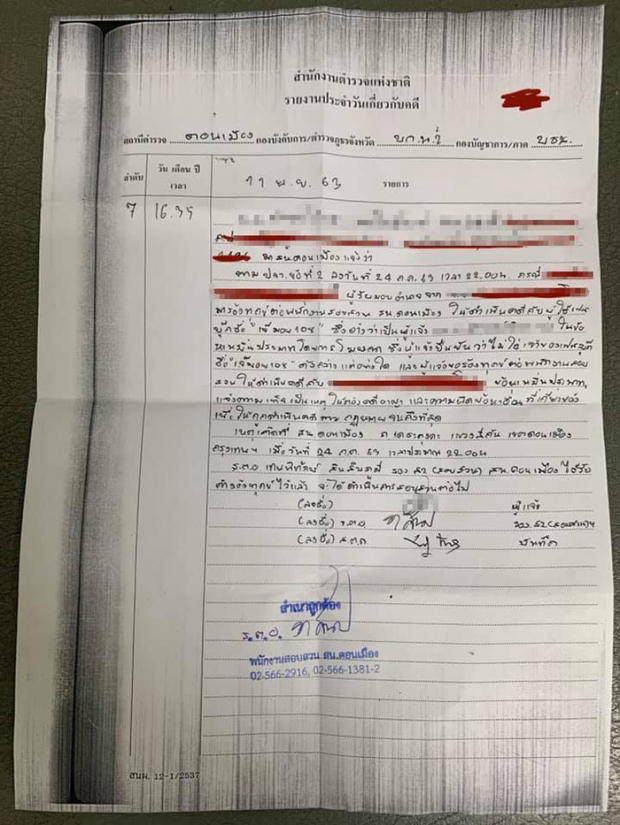 สำนักงานตำรวจแห่งชาติ
รายงานประจำวันเกี่ยวกับคดี
สถานีตำรวจ ดอนเมือง กองบังคับการ/ตำรวจภูธรจังหวัด บก.น.2 กองบัญชาการ/ภาค บชน.
ลำดับ วัน เดือน ปี เวลา 11 พ.ย. 63 รายการ
7 16.35
สน.ดอนเมือง แจ้งว่า
ตาม ปจว.ข้อที่ 2 ลงวันที่ 24 ก.ค. 63 เวลา 22.00 น. กรณี
ผู้รับมอบอำนาจจาก
มาร้องทุกข์ต่อพนักงานสอบสวน สน.ดอนเมือง ให้ดำเนินคดีกับผู้ใช้เฟส
ซึ่งอ้างว่าเป็นผู้แจ้ง ในข้อ
หาหมิ่นประมาทโดยการโฆษณา ซึ่งผู้แจ้งยืนยันว่าไม่ได้
ดังกล่าวแต่อย่างใด และผู้แจ้งขอร้องทุกข์ต่อพนักงานสอบ
สวนให้ดำเนินคดีกับ
แจ้งความเท็จ
เพื่อให้ถูกดำเนินคดีตามกฎหมายจนถึงที่สุด
เหตุเกิดที่ สน.ดอนเมือง ถ.เดชะตุงคะ แขวงสีกัน เขตดอนเมือง
กรุงเทพฯ เมื่อวันที่ 24 ก.ค. 63 เวลาประมาณ 22.00 น.
ร.ต.อ. รอง สว.(สอบสวน) สน.ดอนเมือง ได้รับ
คำร้องทุกข์ไว้แล้ว จะได้ดำเนินการสอบสวนต่อไป
(ลงชื่อ) ผู้แจ้ง
(ลงชื่อ) ร.ต.อ. รอง สว.(สอบสวน)ฯ
(ลงชื่อ) บันทึก
สำเนาถูกต้อง
ร.ต.อ.
พนักงานสอบสวน สน.ดอนเมือง
02-566-2916, 02-566-1381-2
สนผ. 12-1/2537